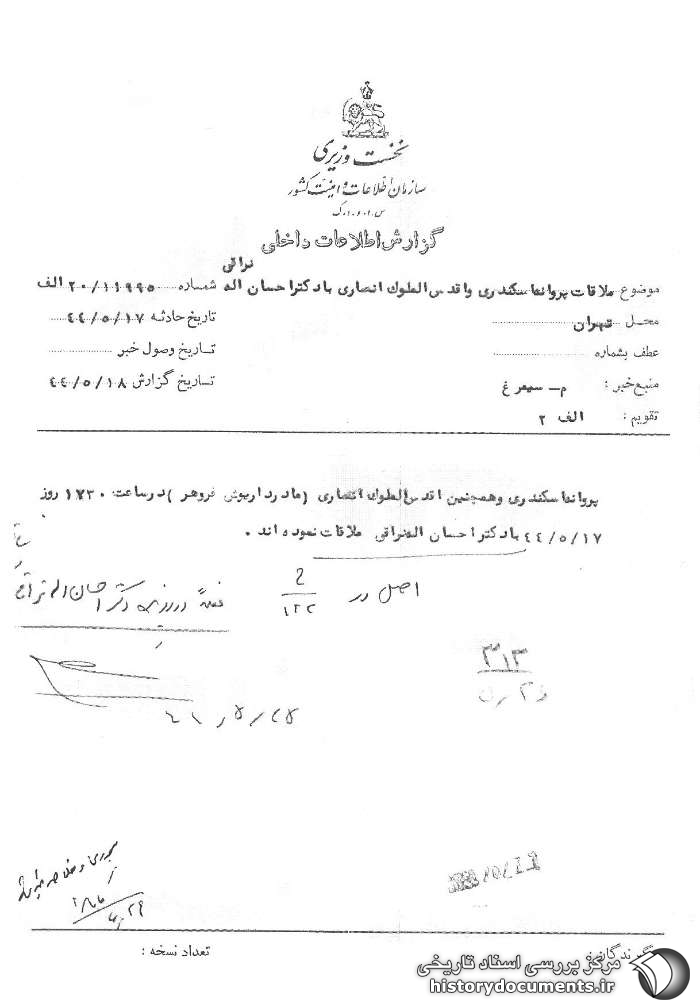 نخست وزیری
سازمان اطلاعات و امنیت کشور
س.ا.و.ا.ک
گزارش اطلاعات داخلی
موضوع ملاقات پروانه اسکندری و اقدس الملوک انصاری با دکتر احسان اله نراقی شماره ۲۰/۱۱۹۹۵ الف
محل تهران تاریخ حادثه ۴۴/۵/۱۷
عطف بشماره تاریخ وصول خبر
منبع خبر : م – سیمرغ تاریخ گزارش ۴۴/۵/۱۸
تقویم : الف ۲
پروانه اسکندری و همچنین اقدس الملوک انصاری (مادر داریوش فروهر) در ساعت ۱۷۳۰ روز
۴۴/۵/۱۷ با دکتر احسان اله نراقی ملاقات نموده اند .
اصل در ۲/۱۲۲
دکتر احسان اله نراقی
۳۱۳
گیرندگان : تعداد نسخه :
مرکز بررسی اسناد تاریخی
historydocuments.ir